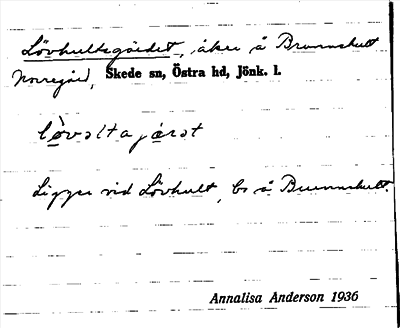 Lövhultsgärdet, åker å Brunnshult
Norregård, Skede sn, Östra hd, Jönk. l.
lò̀vəltajæ̀rət
Ligger vid Lövhult, bs å Brunnshult.
Annalisa Anderson 1936